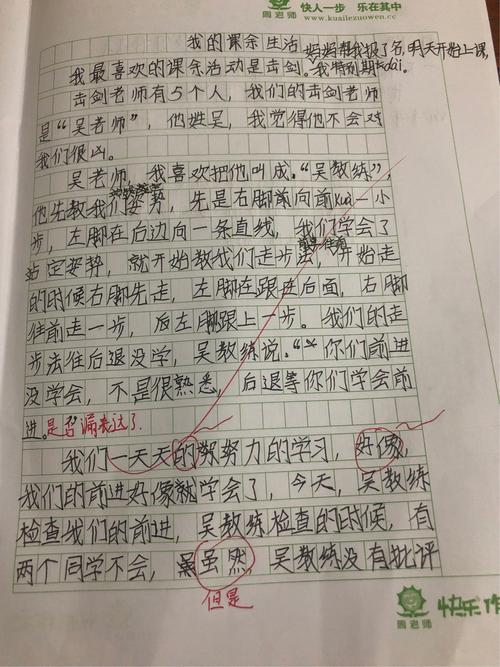 周老师
快人一步 乐在其中
www.kuailezuowen.cc
我的课余生活
妈妈帮我报了名,明天开始上课,
我最喜欢的课余活动是击剑。我特别期dài.
击剑老师有5个人,我们的击剑老师
是“吴老师”,他姓吴,我觉得他不会对
我们很凶。
吴老师,我喜欢把他叫成“吴教练”,
他先教我们姿势,先是右脚前向前kuà一小
步,左脚在后边向一条直线,我们学会了
站定姿势,就开始教我们走步法,开始走
的时候右脚先走,左脚在跟在后面,右脚
往前走一步,后左脚跟上一步。我们的走
步法往后退没学,吴教练说:“你们前进
没学会,不是很熟悉,后退等你们学会前
进。是否漏表达了.
我们一天天的努力的学习,好像,
我们的前进好像就学会了,今天,吴教练
检查我们的前进,吴教练检查的时候,有
两个同学不会,虽然,吴教练没有批评
但是
周老师
快乐作